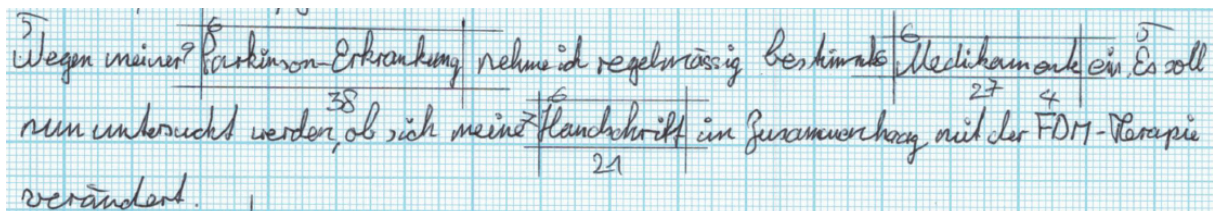 Wegen meiner Parkinson-Erkrankung nehme ich regelmässig bestimmte Medikamente ein. Es soll
nun untersucht werden, ob sich meine Handschrift im Zusammenhang mit der FDM-Terapie
verändert.